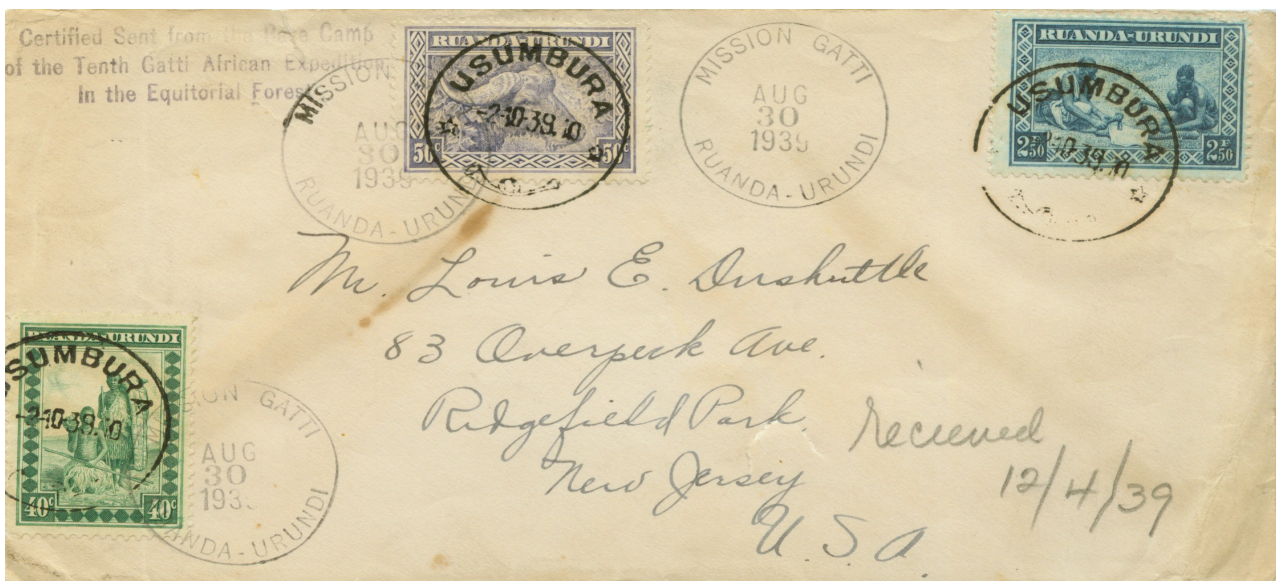 Certified Sent from the Base Camp
of the Tenth Gatti African Expedition
In the Equitorial Forest
RUANDA-URUNDI
50c 50c
USUMBURA
-2-10-39.10
MISSION
AUG
30
1939
RUANDA-URUNDI
MISSION GATTI
AUG
30
1939
RUANDA-URUNDI
RUANDA-URUNDI
2F50 2F50
USUMBURA
-2-10-39.10
Mr. Louis E. Durshuttle
83 Overpeck Ave.
Ridgefield Park,
New Jersey
U.S.A.
Recieved
12/4/39
RUANDA-URUNDI
40c 40c
USUMBURA
-2-10-39.10
GATTI
AUG
30
193
ANDA-URUNDI